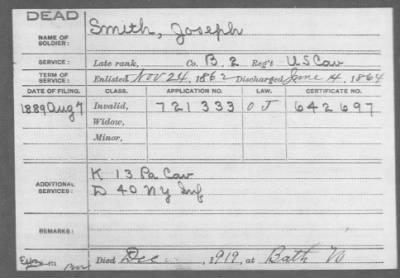 DEAD
NAME OF SOLDIER: Smith, Joseph
SERVICE: Late rank, Co. B. 2 Reg't US Cav
TERM OF SERVICE: Enlisted Nov 24, 1862 Discharged June 14, 1864
DATE OF FILING. CLASS. APPLICATION NO. LAW. CERTIFICATE NO.
1889 Aug 7 Invalid, 721333 O J 642697
Widow,
Minor,
ADDITIONAL SERVICES: K 13 Pa Cav
D 40 NY Inf
REMARKS:
Died Dec , 1919, at Bath